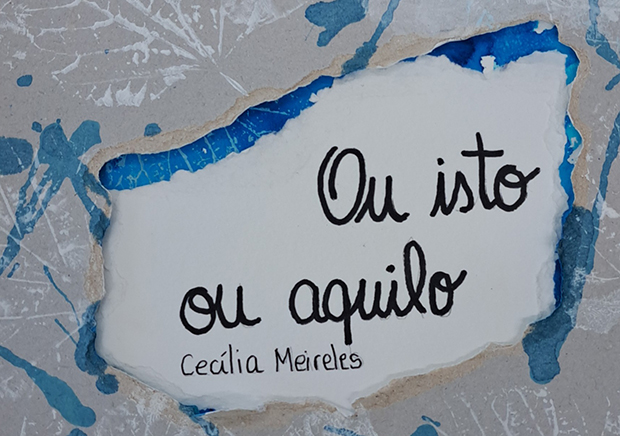 Ou isto
ou aquilo
Cecília Meireles